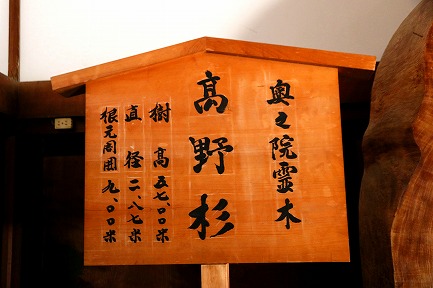 奥之院霊木
高野杉
樹高五七.〇〇米
直径二.八七米
根元周囲九.〇〇米